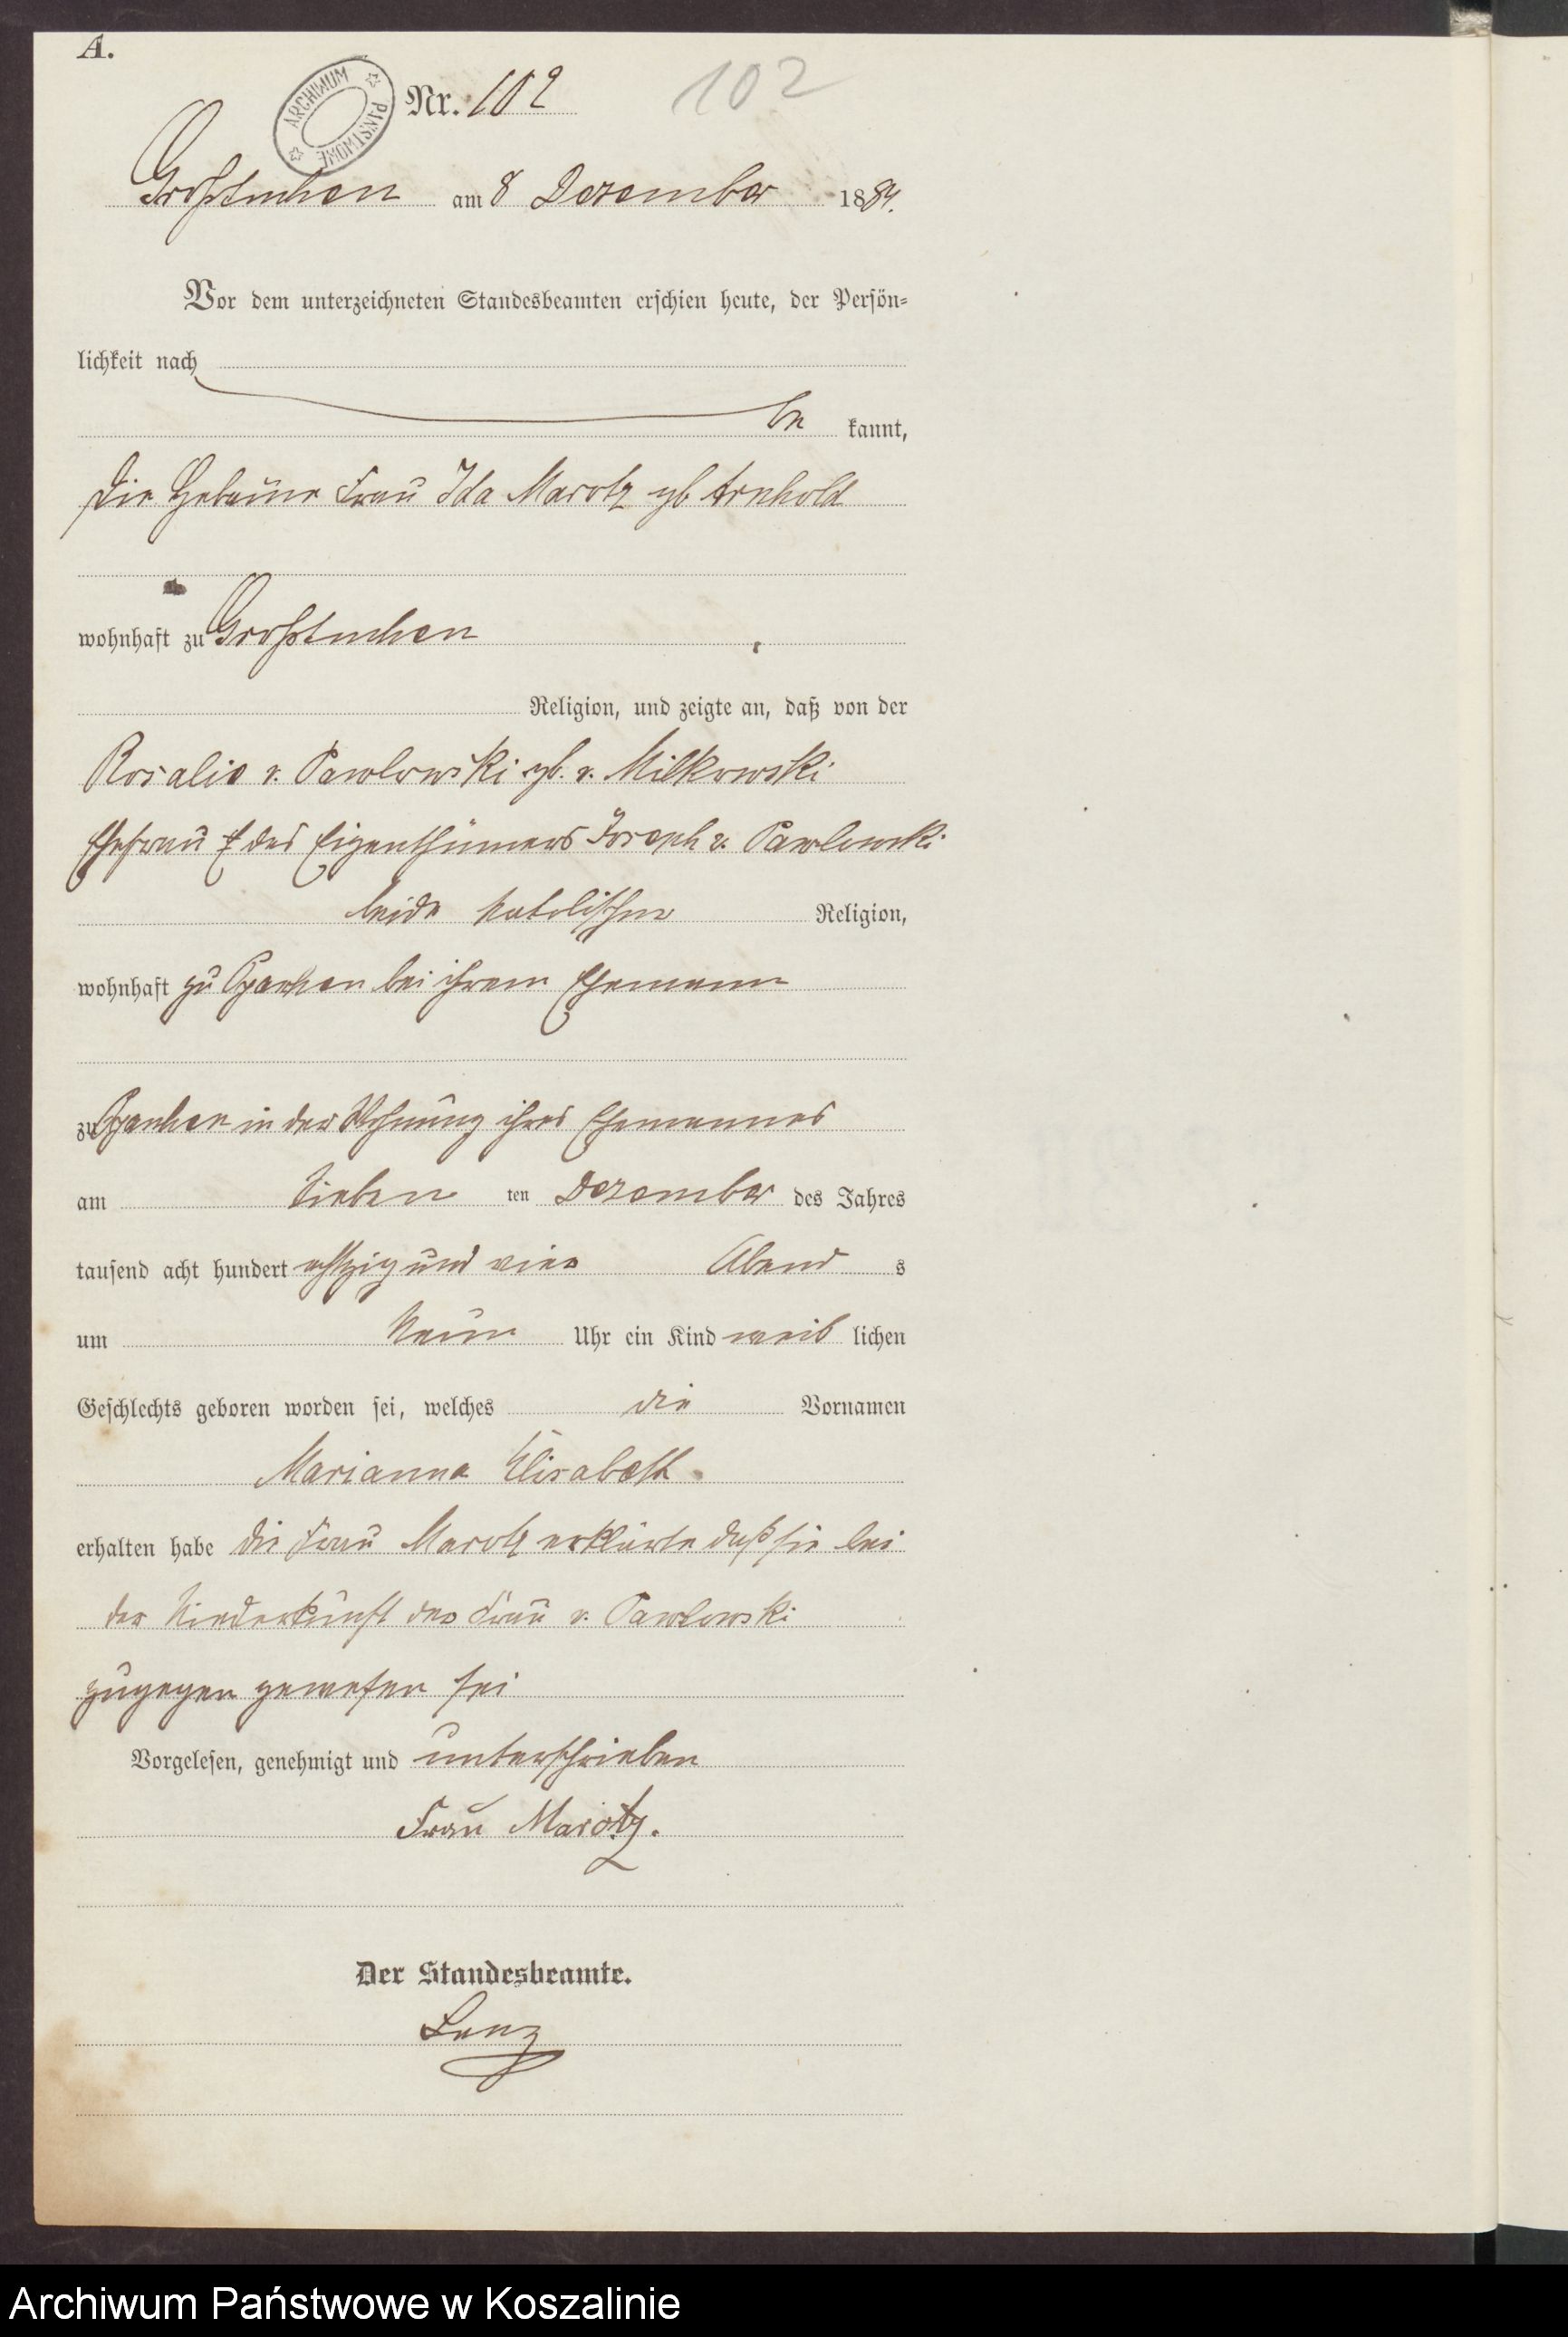 A.
ARCHIWUM PAŃSTWOWE
Nr. 102
102
Großtuchen am 8 Dezember 1884.
Vor dem unterzeichneten Standesbeamten erschien heute, der Persön-
lichkeit nach
be kannt,
die Hebamme Frau Ida Marotz gb Arnhold
wohnhaft zu Großtuchen
Religion, und zeigte an, daß von der
Rosalie v. Pawlowski gb. v. Milkowski
Ehefrau des Eigenthümers Joseph v. Pawlowski
beide katolischer Religion,
wohnhaft zu bei ihrem Ehemann
zu in der Wohnung ihres Ehemannes
am sieben ten Dezember des Jahres
tausend acht hundert achtzig und vier Abend s
um Neun Uhr ein Kind weib lichen
Geschlechts geboren worden sei, welches die Vornamen
Marianna Elisabeth
erhalten habe die Frau Marotz erklärte daß sie bei
der Niederkunft der Frau v. Pawlowski
zugegen gewesen sei
Vorgelesen, genehmigt und unterschrieben
Frau Marotz.
Der Standesbeamte.
Lenz
Archiwum Państwowe w Koszalinie